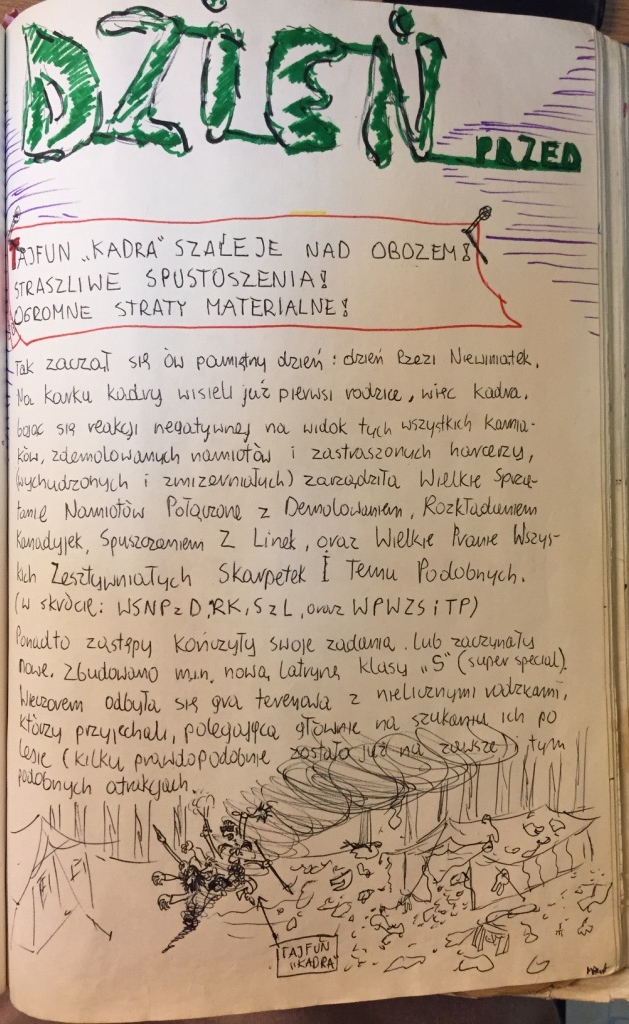 DZIEŃ
PRZED
TAJFUN „KADRA" SZALEJE NAD OBOZEM!
STRASZLIWE SPUSTOSZENIA!
OGROMNE STRATY MATERIALNE!
Tak zaczął się ów pamiętny dzień: dzień Rzezi Niewiniątek.
Na karku kadry wisieli już pierwsi rodzice, więc kadra,
bojąc się reakcji negatywnej na widok tych wszystkich
zdemolowanych namiotów i zastraszonych harcerzy,
(wychudzonych i zmizerniałych) zarządziła Wielkie Sprzą-
tanie Namiotów Połączone z Demolowaniem, Rozkładaniem
Kanadyjek, Spuszczaniem Z Linek, oraz Wielkie Pranie Wszys-
kich Zesztywniałych Skarpetek I Temu Podobnych.
(w skrócie: WSNPzD, RK, SzL, oraz WPWZSiTP)
Ponadto zastępy kończyły swoje zadania. Lub zaczynały
nowe. Zbudowano m.in. nową latrynę klasy „S" (super special).
Wieczorem odbyła się gra terenowa z nielicznymi rodzicami,
którzy przyjechali, polegająca głównie na szukaniu ich po
lesie (kilku prawdopodobnie zostało już na zawsze) i tym
podobnych atrakcjach.
TAJFUN
„KADRA"